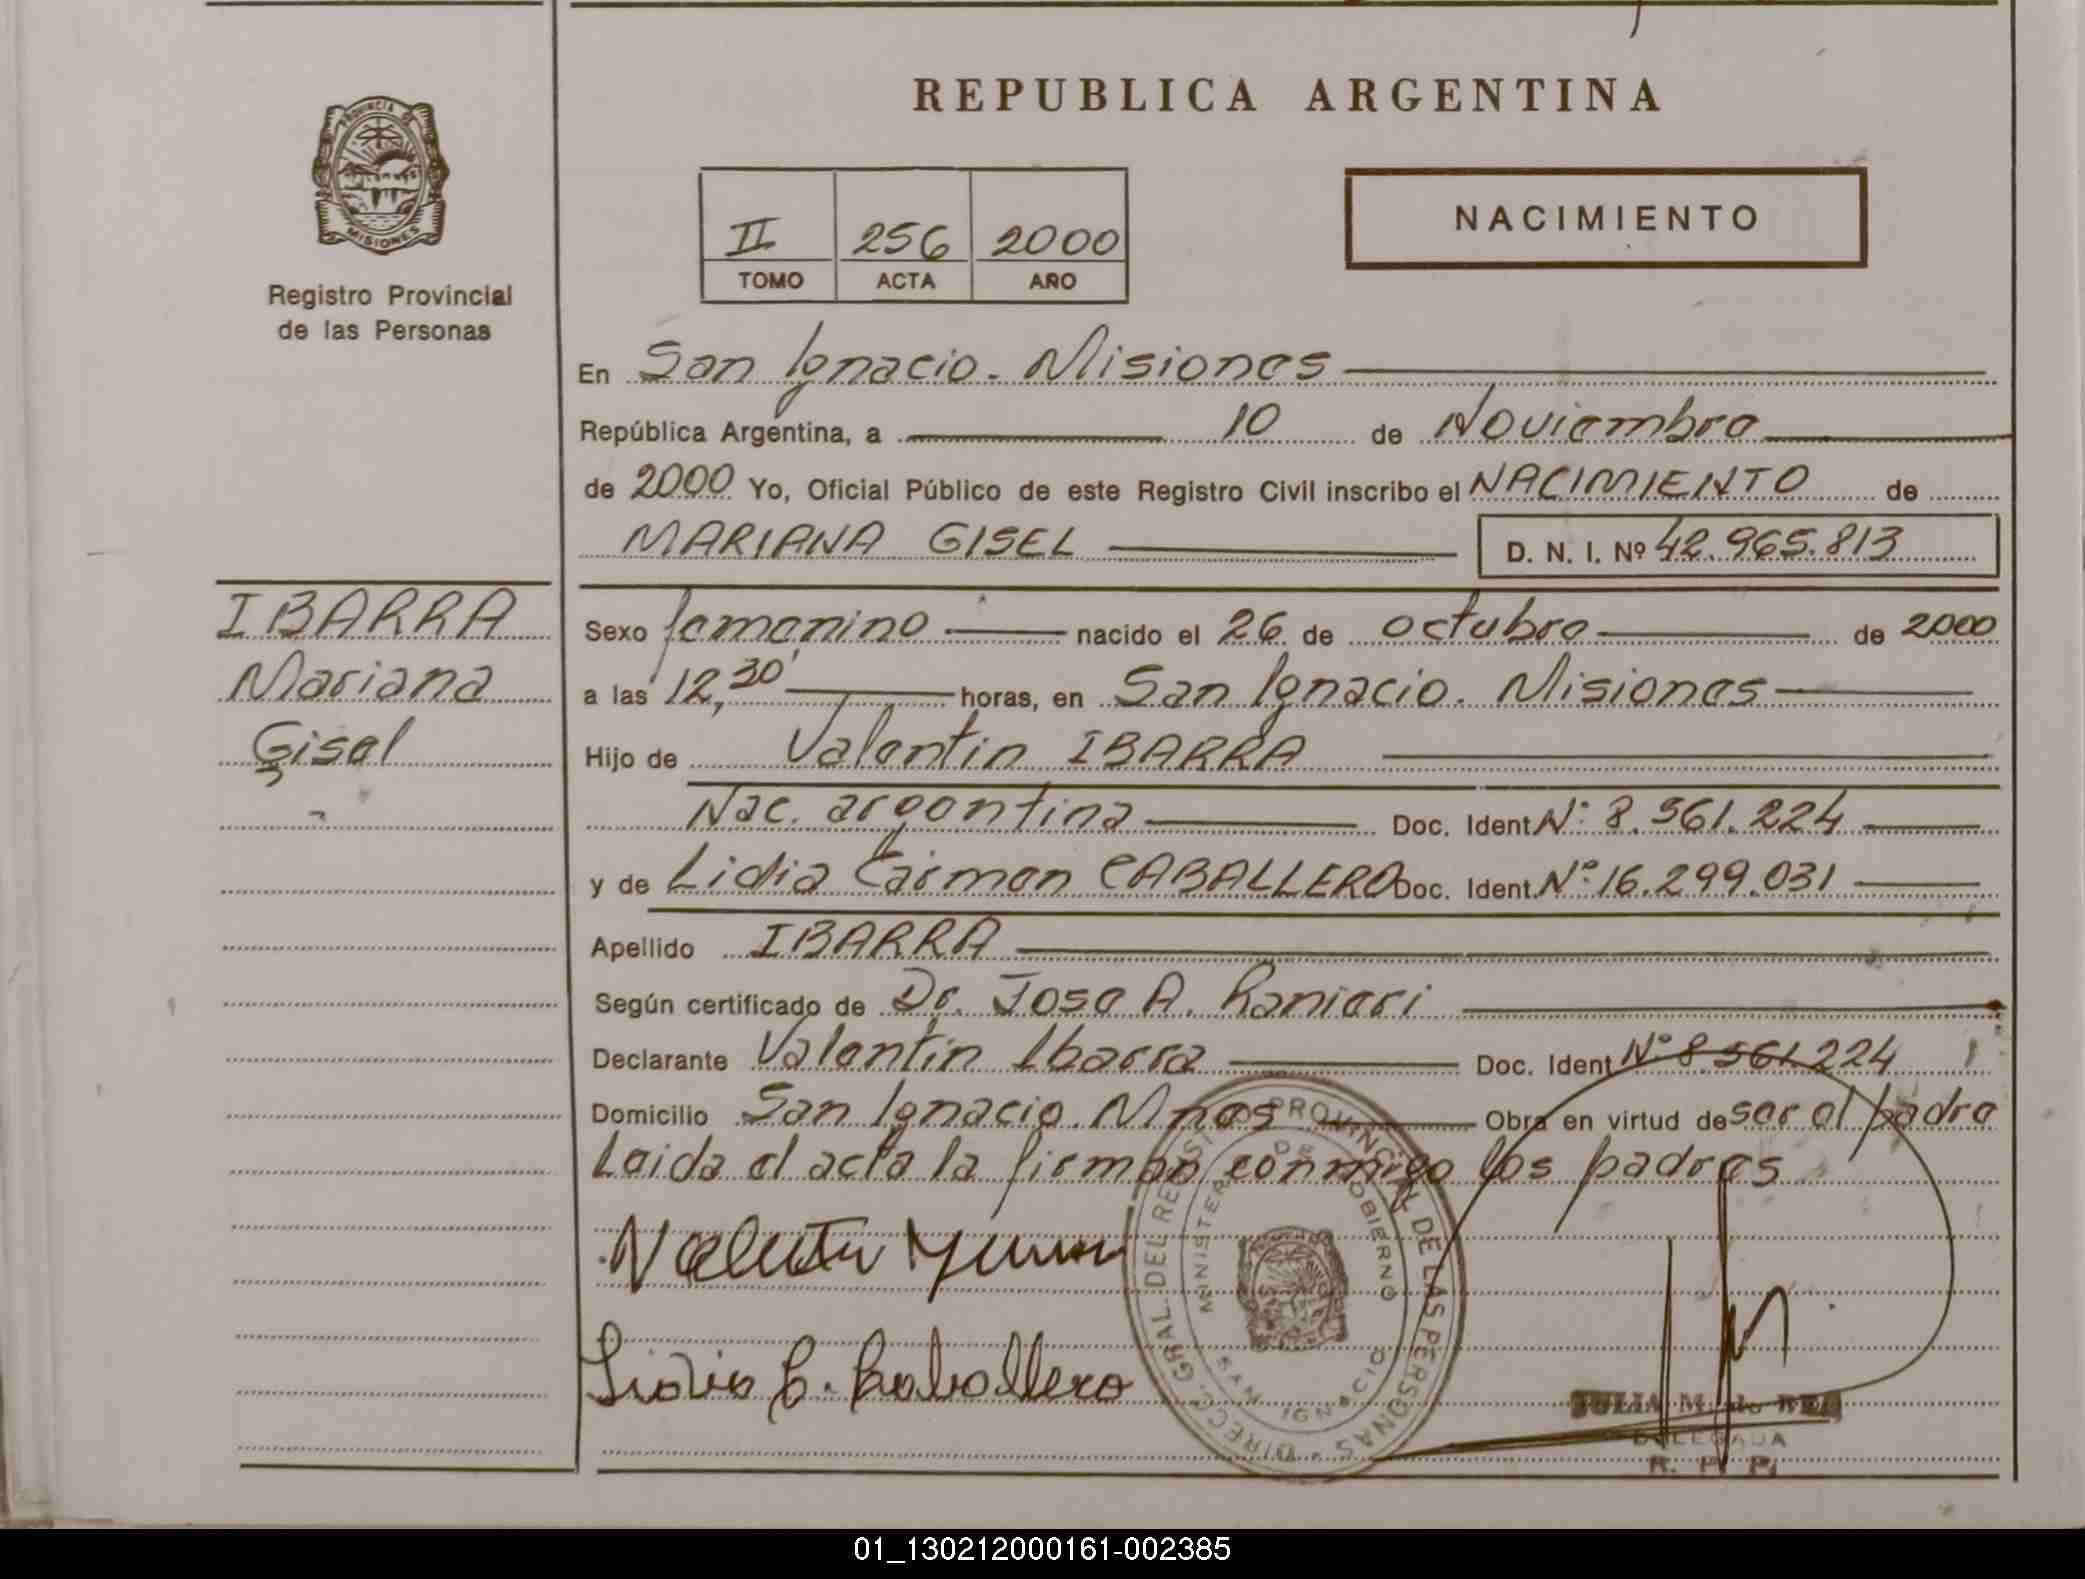 REPUBLICA ARGENTINA
PROVINCIA DE
MISIONES
Registro Provincial
de las Personas
II 256 2000
TOMO ACTA AÑO
NACIMIENTO
En San Ignacio. Misiones
República Argentina, a 10 de Noviembre
de 2000 Yo, Oficial Público de este Registro Civil inscribo el NACIMIENTO de
MARIANA GISEL D. N. I. Nº 42.965.813
IBARRA
Mariana
Gisel
Sexo femenino nacido el 26 de octubre de 2000
a las 12,30' horas, en San Ignacio. Misiones
Hijo de Valentin IBARRA
Nac. argentina Doc. Ident. Nº 8.561.224
y de Lidia Carmen CABALLERO Doc. Ident. Nº 16.299.031
Apellido IBARRA
Según certificado de Dr. Jose A. Ranieri
Declarante Valentin Ibarra Doc. Ident Nº 8.561.224
Domicilio San Ignacio. Mnes Obra en virtud de ser el padre
Leida el acta la firman conmigo los padres
Lidia C. Caballero
DIRECC. GRAL. DEL REGISTRO PROVINCIAL DE LAS PERSONAS
MINISTERIO DE GOBIERNO
SAN IGNACIO
JULIA M. de
DELEGADA
R. P. P.
01_130212000161-002385